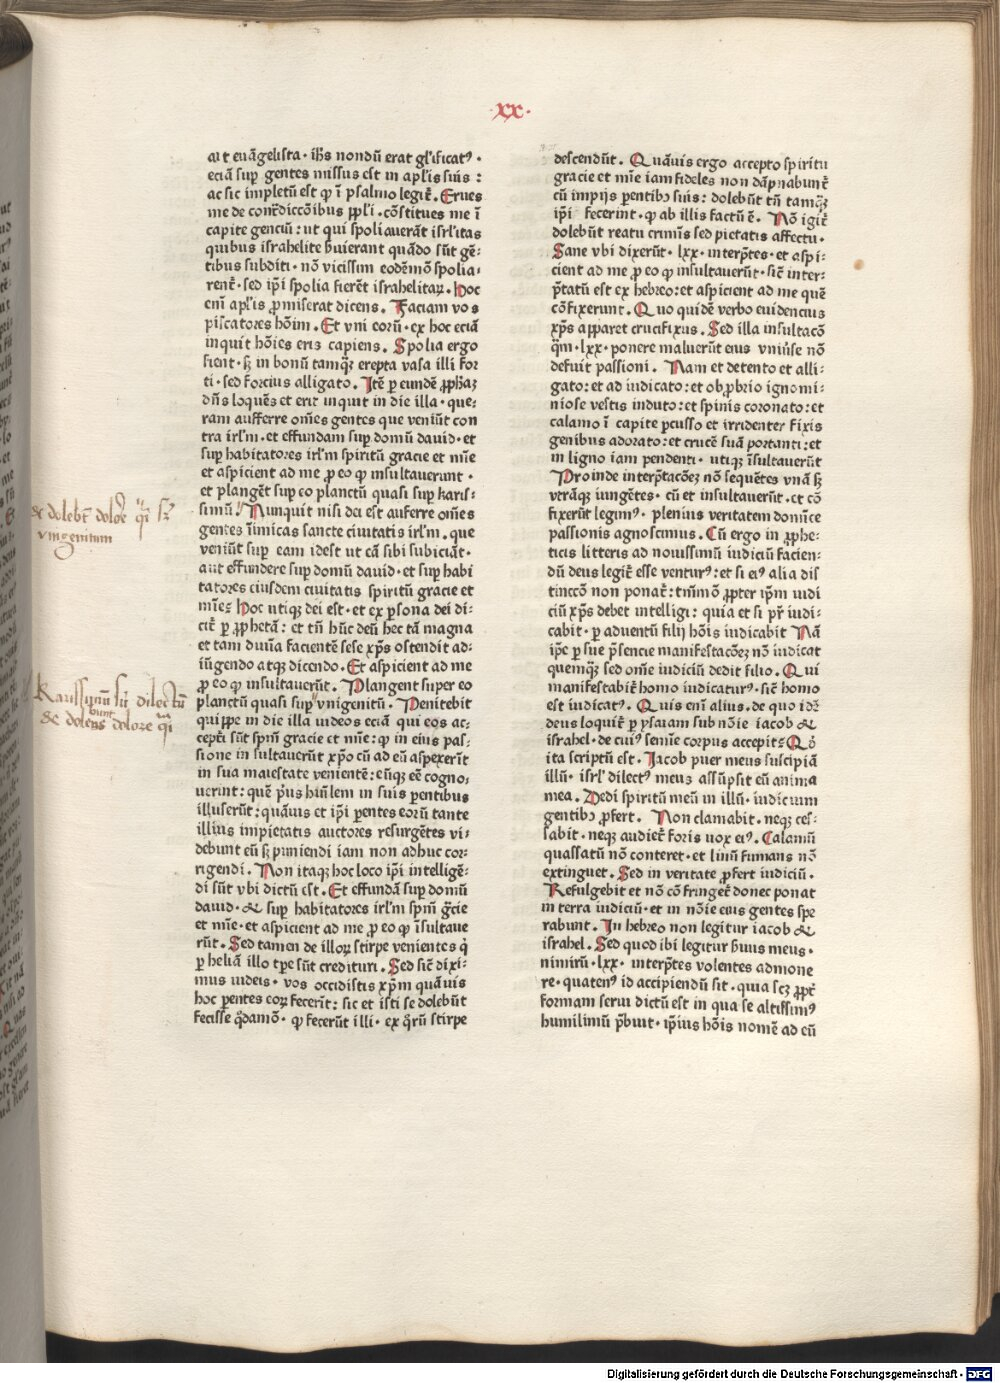 ·xx·
ait euãgelista · ihs̃ nondũ erat gl̃ificatꝰ ·
eciã suꝑ gentes missus est in apl̃is suis :
ac sic impletũ est ꝙ ĩ psalmo legit̃ . Erues
me de cont̃diccõibus ppl̃i . cõstitues me ĩ
capite genciũ : ut qui spoliauerãt isrl̃itas
quibus israhelite ẜuierant quãdo sũt gẽ:
tibus subditi · nõ vicissim eodẽmõ spolia:
rent̃ · sed ip̃i spolia fierẽt israhelitaꝝ . Hoc
em̃ apl̃is ꝓmiserat dicens . Faciam vos
piscatores hõim . Et vni eorũ · ex hoc eciã
inquit hõies eris capiens . Spolia ergo
fient · ſꝫ in bonũ tamqꝫ̃ erepta vasa illi for
ti · sed forcius alligato . Itẽ ꝑ eundẽ ꝓph̃aꝫ
dñs loquẽs et erit inquit in die illa · que:
ram aufferre om̃es gentes que veniũt con
tra irl̃m · et effundam suꝑ domũ dauid · et
suꝑ habitatores irl̃m spiritũ gracie et mĩe
et aspicient ad me ꝓ eo ꝙ insultauerunt ·
et plangẽt suꝑ eo planctũ quasi suꝑ karis:
simũ Nunquit nisi dei est auferre om̃es
gentes ĩimicas sancte ciuitatis irl̃m . que
veniũt suꝑ eam idest ut eã sibi subiciãt ·
aut effundere suꝑ domũ dauid · et suꝑ habi
tatores eiusdem ciuitatis spiritũ gracie et
mĩe: Hoc utiqꝫ dei est · et ex ꝑsona dei di:
cit̃ ꝑ ꝓphetã : et tñ hũc deũ hec tã magna
et tam diuĩa facientẽ sese xp̃s ostendit ad:
iũgendo atqꝫ dicendo . Et aspicient ad me
ꝓ eo ꝙ insultauerũt . Plangent super eo
planctũ quasi suꝑ vnigenitũ . Penitebit
quippe in die illa iudeos eciã qui eos ac:
cepti sũt spm̃ gracie et mĩe : ꝙ in eius pas:
sione in sultauerũt xp̃o cũ ad eũ aspexerĩt
in sua maiestate venientẽ : eũqꝫ eẽ cogno:
uerint : quẽ pͥus hiũlem in suis ꝑentibus
illuserũt : quãuis et ip̃i ꝑentes eorũ tante
illius impietatis auctores resurgẽtes vi:
debunt eũ ſꝫ puniendi iam non adhuc cor:
rigendi . Non itaqꝫ hoc loco ip̃i intelligẽ:
di sũt vbi dictũ est . Et effundã suꝑ domũ
dauid · & suꝑ habitatores irl̃m spm̃ gr̃cie
et mĩe · et aspicient ad me ꝓ eo ꝙ ĩsultaue
rũt . Sed tamen de illoꝝ stirpe venientes qͥ
ꝑ heliã illo tꝑe sũt credituri . Sed sic̃ dixi:
mus iudeis · vos occidistis xp̃m quãuis
hoc ꝑentes eoꝝ fecerĩt : sic et isti se dolebũt
fecisse qͦdamõ · ꝙ fecerũt illi · ex qͦrũ stirpe
descendũt . Quãuis ergo accepto spiritu
gracie et mĩe iam fideles non dãpnabunt̃
cũ impijs ꝑentibꝰ suis : dolebũt tñ tamqꝫ̃
ip̃i fecerint · ꝙ ab illis factũ ẽ . Nõ igit̃
dolebũt reatu crimĩs sed pietatis affectu ·
Sane vbi dixerũt · lxx · interp̃tes · et aspi:
cient ad me ꝓ eo ꝙ insultauerũt · sic̃ inter:
p̃tatũ est ex hebreo : et aspicient ad me quẽ
cõfixerunt . Quo quidẽ verbo euidencius
xp̃s apparet crucifixus . Sed illa insultacõ
qm̃ · lxx · ponere maluerũt eius vniũse nõ
defuit passioni . Nam et detento et alli:
gato : et ad iudicato : et obꝓbrio ignomi:
niose vestis induto : et spinis coronato : et
calamo ĩ capite ꝑcusso et irridenter fixis
genibus adorato : et crucẽ suã portanti : et
in ligno iam pendenti · utiqꝫ ĩsultauerũt
Proinde interp̃tacõeꝫ nõ seq̃uẽtes vnã ſꝫ
verãqꝫ iungẽtes · cũ et insultauerũt · et cõ
fixerũt legimꝰ · plenius veritatem domĩce
passionis agnoscimus . Cũ ergo in ꝓphe:
ticis litteris ad nouissimũ iudiciũ facien:
dũ deus legit̃ esse venturꝰ : et si eiꝰ alia dis
tinccõ non ponat̃ : tñmõ ꝓpter ip̃m iudi
ciũ xp̃s debet intelligi : quia et si pr̃ iudi:
cabit · ꝑ aduentũ filij hõis iudicabit Nã
ip̃e ꝑ sue p̃sencie manifestacõeꝫ nõ iudicat
quemqꝫ̃ sed om̃e iudiciũ dedit filio . Qui
manifestabit̃ homo iudicaturꝰ · sic̃ homo
est iudicatꝰ . Quis em̃ alius · de quo idꝫ̃
deus loquit̃ ꝑ ysaiam sub nõie iacob &
israhel · de cuiꝰ semĩe corpus accepit: Qͦ
ita scriptũ est . Iacob puer meus suscipiã
illũ · isrl̃ dilectꝰ meus assũpsit eũ anima
mea . Dedi spiritũ meũ in illũ · iudicium
gentibꝰ ꝓfert . Non clamabit · neqꝫ ces:
sabit · neqꝫ audiet̃ foris uox eiꝰ . Calamũ
quassatũ nõ conteret · et linũ fumans nõ
extinguet . Sed in veritate ꝓfert iudiciũ .
Refulgebit et nõ cõfringet̃ donec ponat
in terra iudiciũ · et in nõie eius gentes spe
rabunt . In hebreo non legitur iacob &
israhel . Sed quod ibi legitur ẜuus meus ·
nimirũ · lxx · interp̃tes volentes admone
re · quatenꝰ id accipiendũ sit · quia scꝫ ꝓpt̃
formam serui dictũ est in qua se altissimꝰ
humilimũ p̃buit · ip̃ius hõis nomẽ ad eũ
& dolebt̃ dolor̃ q̈i sꝛ̃
vnigenitum
Karissimũ sũ dilectũ
& dolebunt dolore q̃i
Digitalisierung gefördert durch die Deutsche Forschungsgemeinschaft - DFG